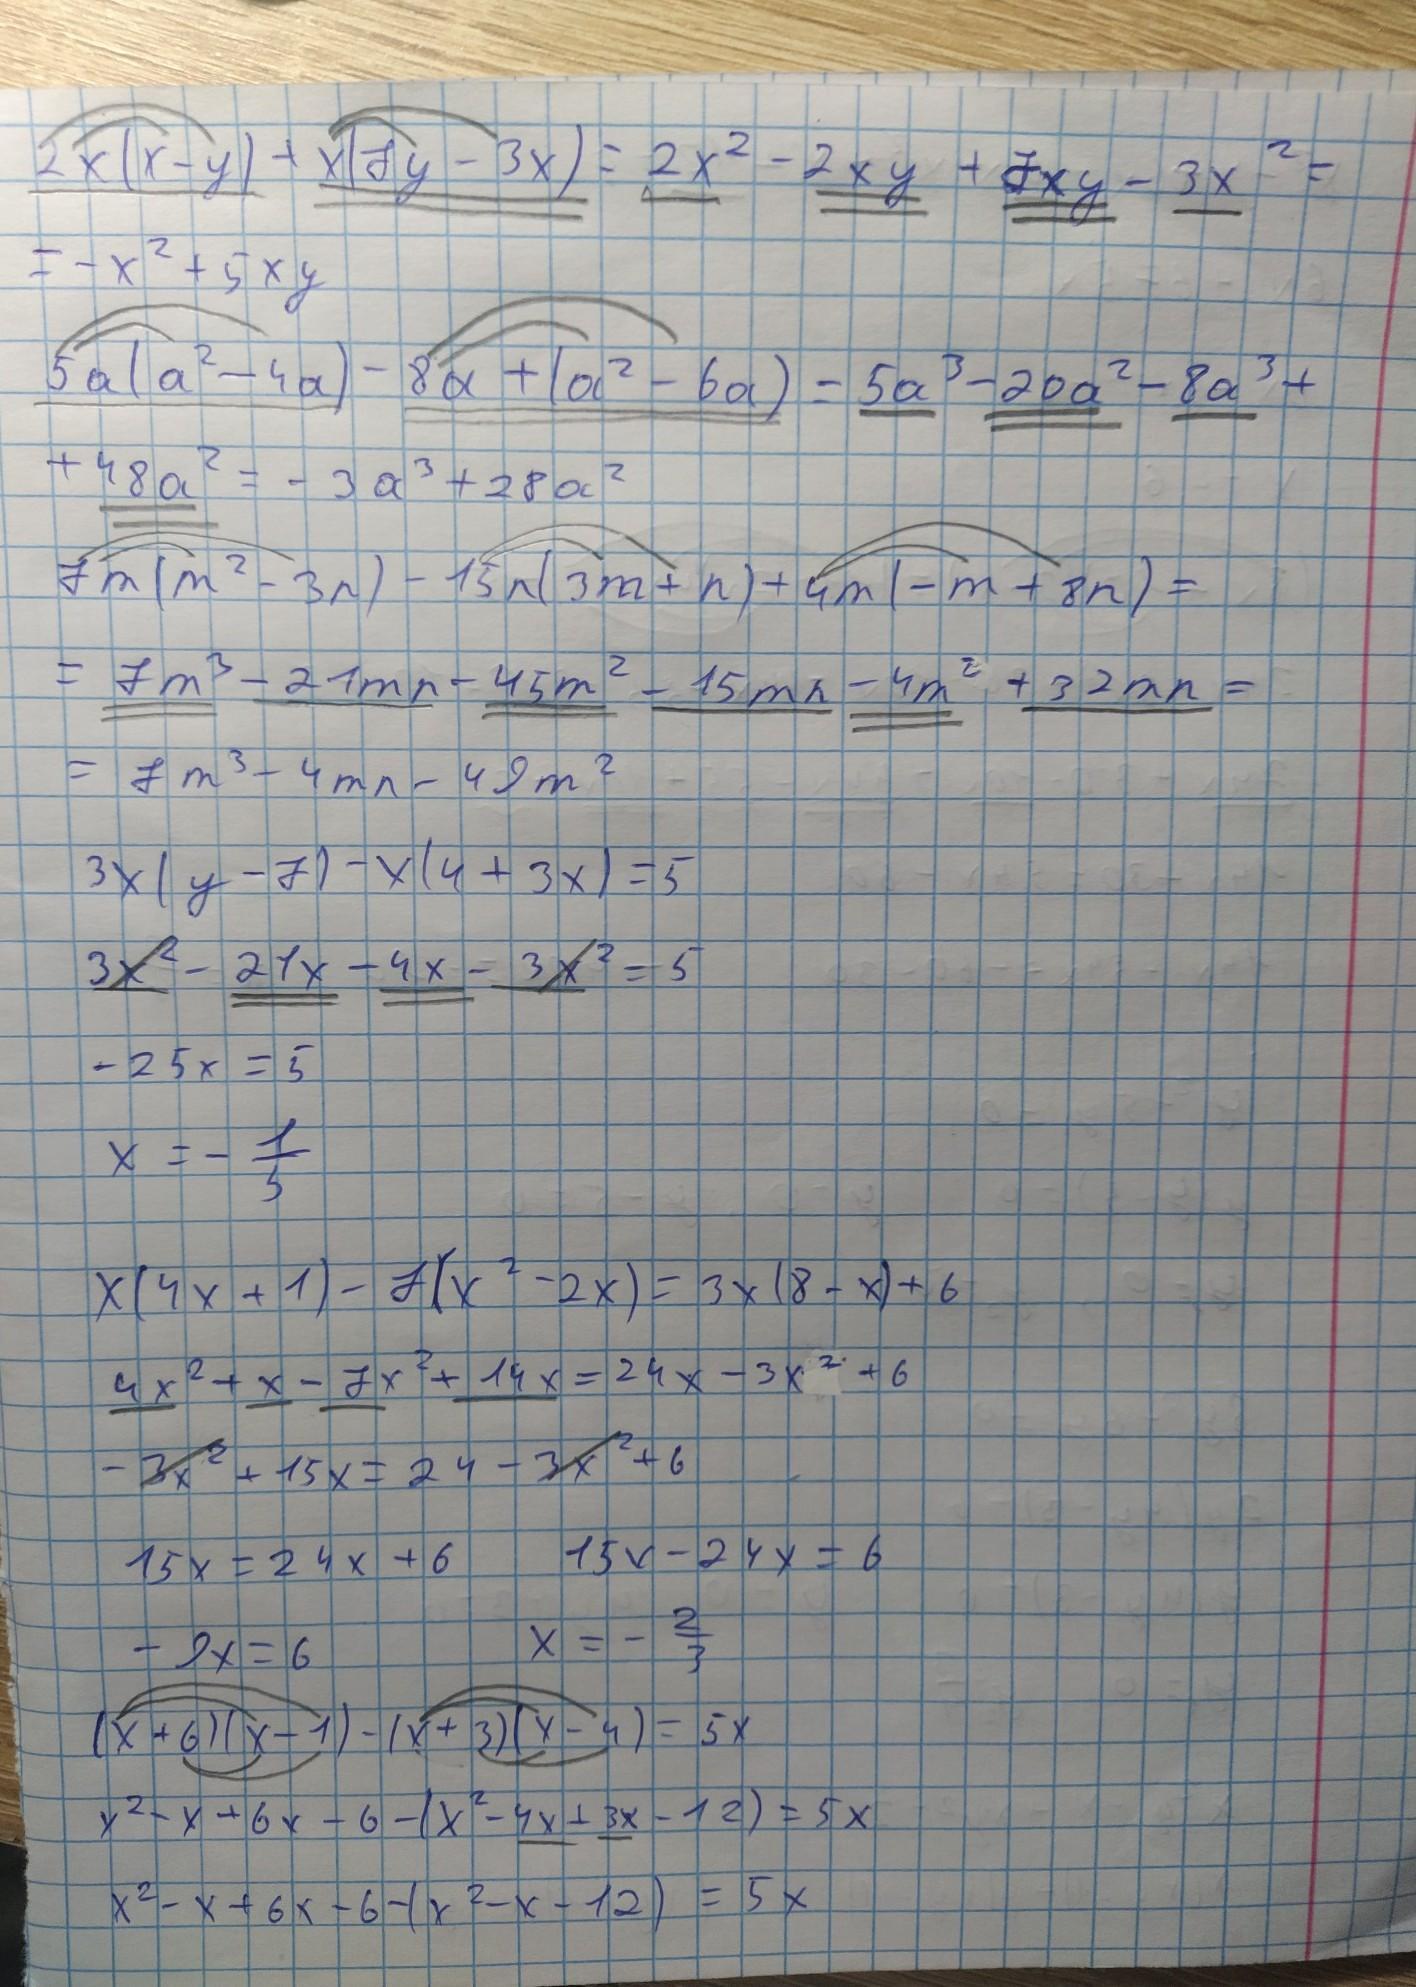 2x(x-y) + x(7y - 3x) = 2x² - 2xy + 7xy - 3x² =
= -x² + 5xy
5a(a² - 4a) - 8a + (a² - 6a) = 5a³ - 20a² - 8a³ +
+ 48a² = -3a³ + 28a²
7m(m² - 3n) - 15n(3m + n) + 4m(-m + 8n) =
= 7m³ - 21mn - 45m² - 15mn - 4m² + 32mn =
= 7m³ - 4mn - 49m²
3x(y - 7) - x(4 + 3x) = 5
3x² - 21x - 4x - 3x² = 5
-25x = 5
x = - 1/5
x(4x + 1) - 7(x² - 2x) = 3x(8 - x) + 6
4x² + x - 7x² + 14x = 24x - 3x² + 6
-3x² + 15x = 24 - 3x² + 6
15x = 24x + 6 15x - 24x = 6
-9x = 6 x = - 2/3
(x + 6)(x - 1) - (x + 3)(x - 4) = 5x
x² - x + 6x - 6 - (x² - 4x + 3x - 12) = 5x
x² - x + 6x - 6 - (x² - x - 12) = 5x